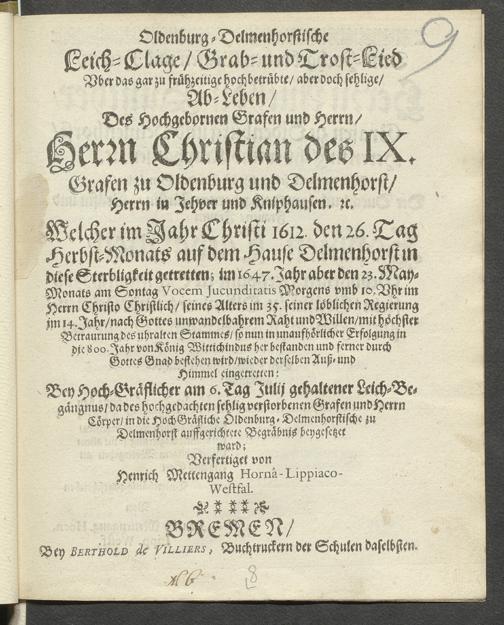 9
Oldenburg-Delmenhorstische
Leich-Clage/ Grab- und Trost-Lied
Vber das gar zu frühzeitige hochbetrübte/ aber doch sehlige/
Ab-Leben/
Des Hochgebornen Grafen und Herrn/
Herrn Christian des IX.
Grafen zu Oldenburg und Delmenhorst/
Herrn in Jehver und Kniphausen. ꝛc.
Welcher im Jahr Christi 1612. den 26. Tag
Herbst-Monats auf dem Hause Delmenhorst in
diese Sterbligkeit getretten; im 1647. Jahr aber den 23. May-
Monats am Sontag Vocem Jucunditatis Morgens vmb 10. Vhr im
Herrn Christo Christlich/ seines Alters im 35. seiner löblichen Regierung
im 14. Jahr/ nach Gottes unwandelbahrem Raht und Willen/ mit höchster
Betraurung des uhralten Stammes/ so nun in unaufhörlicher Erfolgung in
die 800. Jahr von König Wittichindus her bestanden und ferner durch
Gottes Gnad bestehen wird/ wieder derselben Auß- und
Himmel eingetretten:
Bey Hoch-Gräflicher am 6. Tag Julij gehaltener Leich-Be-
gängnus/ da des hochgedachten sehlig verstorbenen Grafen und Herrn
Cörper/ in die Hoch Gräfliche Oldenburg-Delmenhorstische zu
Delmenhorst auffgerichtete Begräbnis beygesetzet
ward;
Verfertiget von
Henrich Mettengang Hornâ-Lippiaco-
Westfal.
BREMEN/
Bey BERTHOLD de VILLIERS, Buchtruckern der Schulen daselbsten.
8